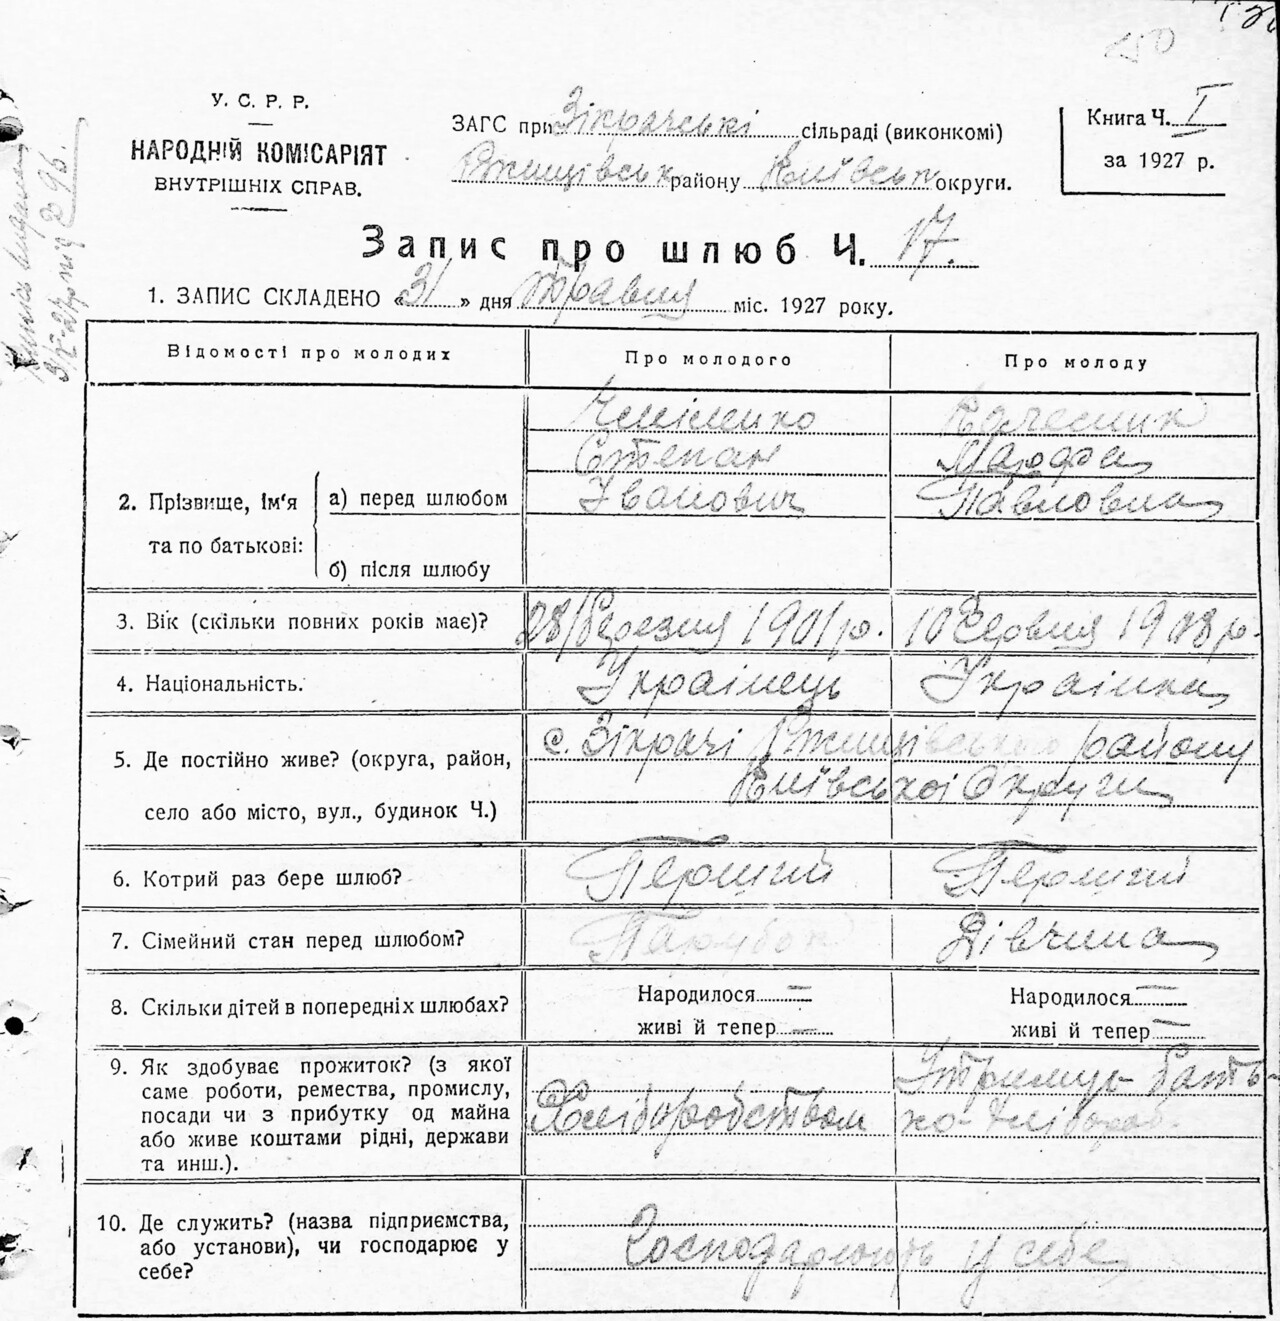 150
У. С. Р. Р.
НАРОДНІЙ КОМІСАРІЯТ
ВНУТРІШНІХ СПРАВ.
ЗАГС при Зікрачські сільраді (виконкомі)
Ржищівськ району Київськ округи.
Книга Ч. I
за 1927 р.
Запис про шлюб Ч. 17.
1. ЗАПИС СКЛАДЕНО «31» дня Травня міс. 1927 року.
Відомості про молодих
Про молодого
Про молоду
2. Прізвище, ім'я
та по батькові:
а) перед шлюбом
б) після шлюбу
Степан
Іванович
Марфа
Павловна
3. Вік (скільки повних років має)?
28/Березня 1901 р.
10 Червня 1908 р.
4. Національність.
Українець
Українка
5. Де постійно живе? (округа, район,
село або місто, вул., будинок Ч.)
с. Зікрачі Ржищівського району
Київської Округи
6. Котрий раз бере шлюб?
Перший
Перший
7. Сімейний стан перед шлюбом?
Парубок
Дівчина
8. Скільки дітей в попередніх шлюбах?
Народилося —
живі й тепер —
Народилося —
живі й тепер —
9. Як здобуває прожиток? (з якої
саме роботи, ремества, промислу,
посади чи з прибутку од майна
або живе коштами рідні, держави
та инш.).
Хліборобством
Утримує бать-
ко-хлібороб.
10. Де служить? (назва підприємства,
або установи), чи господарює у
себе?
Господарюють у себе